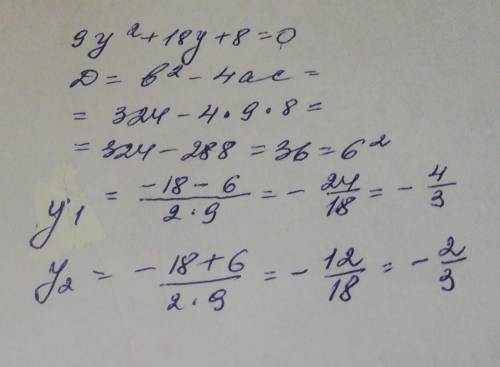 9y²+18y+8=0
D= b²-4ac=
= 324-4•9•8=
= 324-288=36=6²
y₁ = (-18-6)/(2•9) = -24/18 = -4/3
y₂ = (-18+6)/(2•9) = -12/18 = -2/3